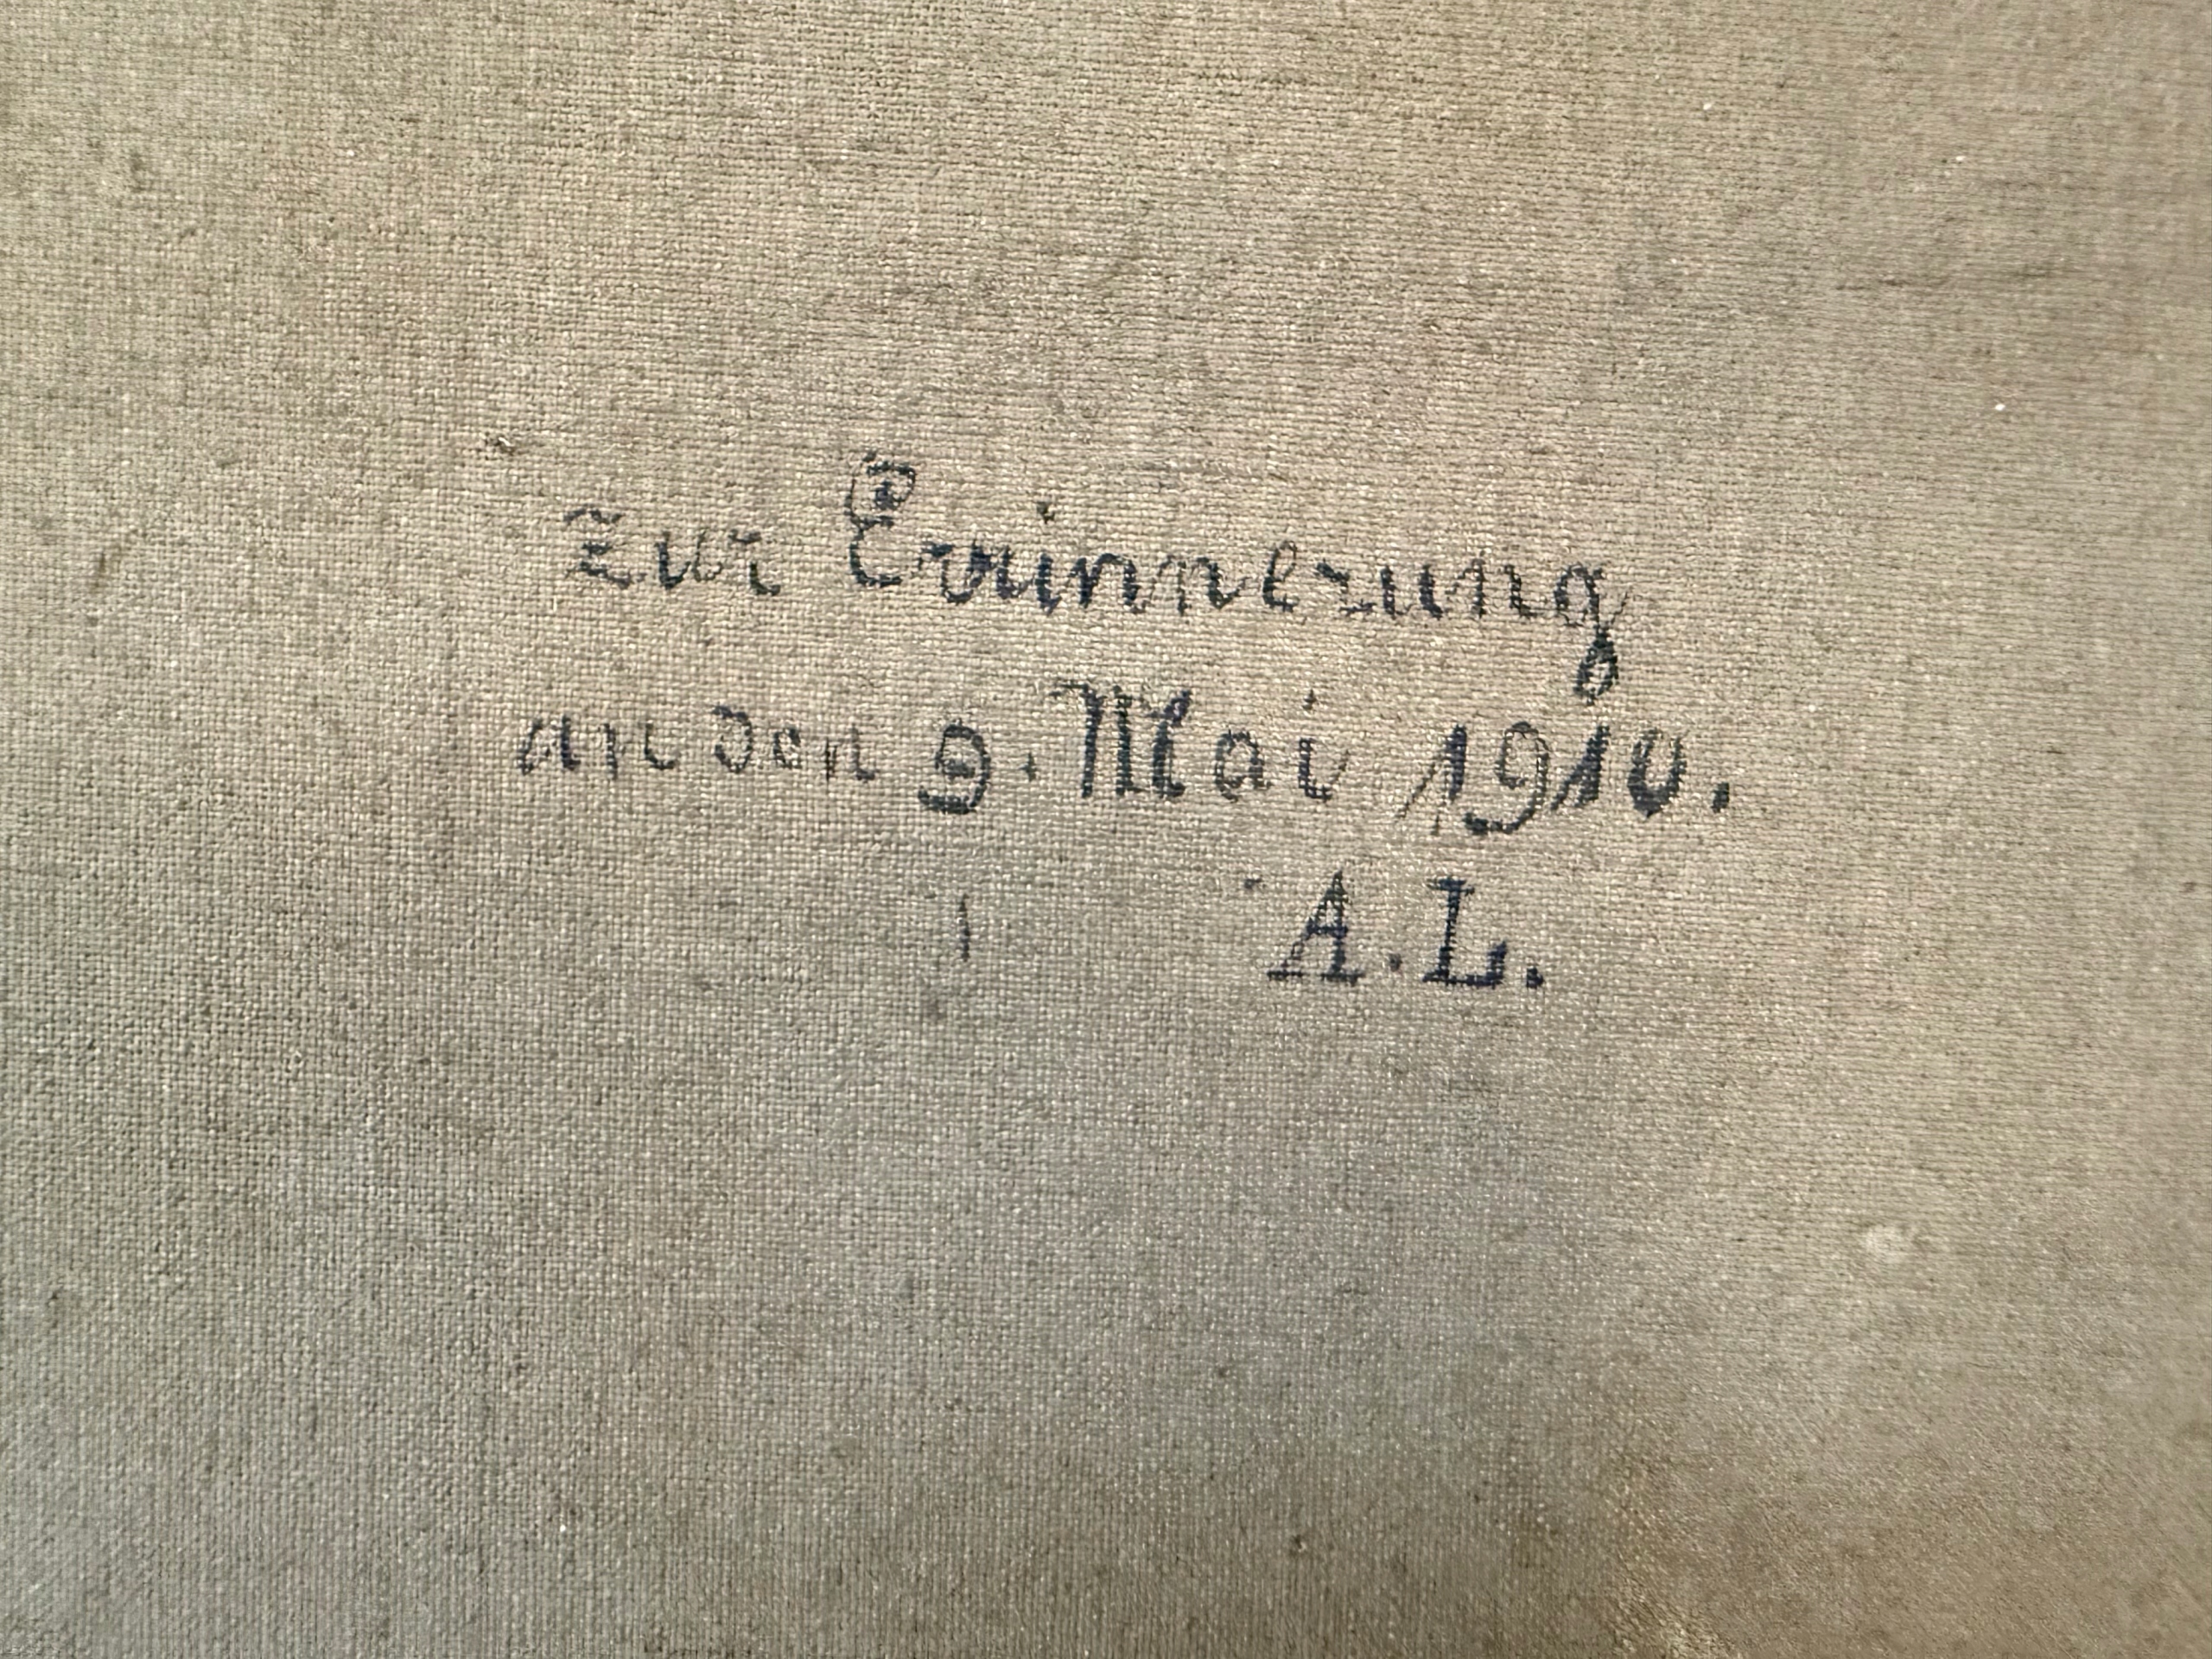 Zur Erinnerung
an den 9. Mai 1910.
A. L.